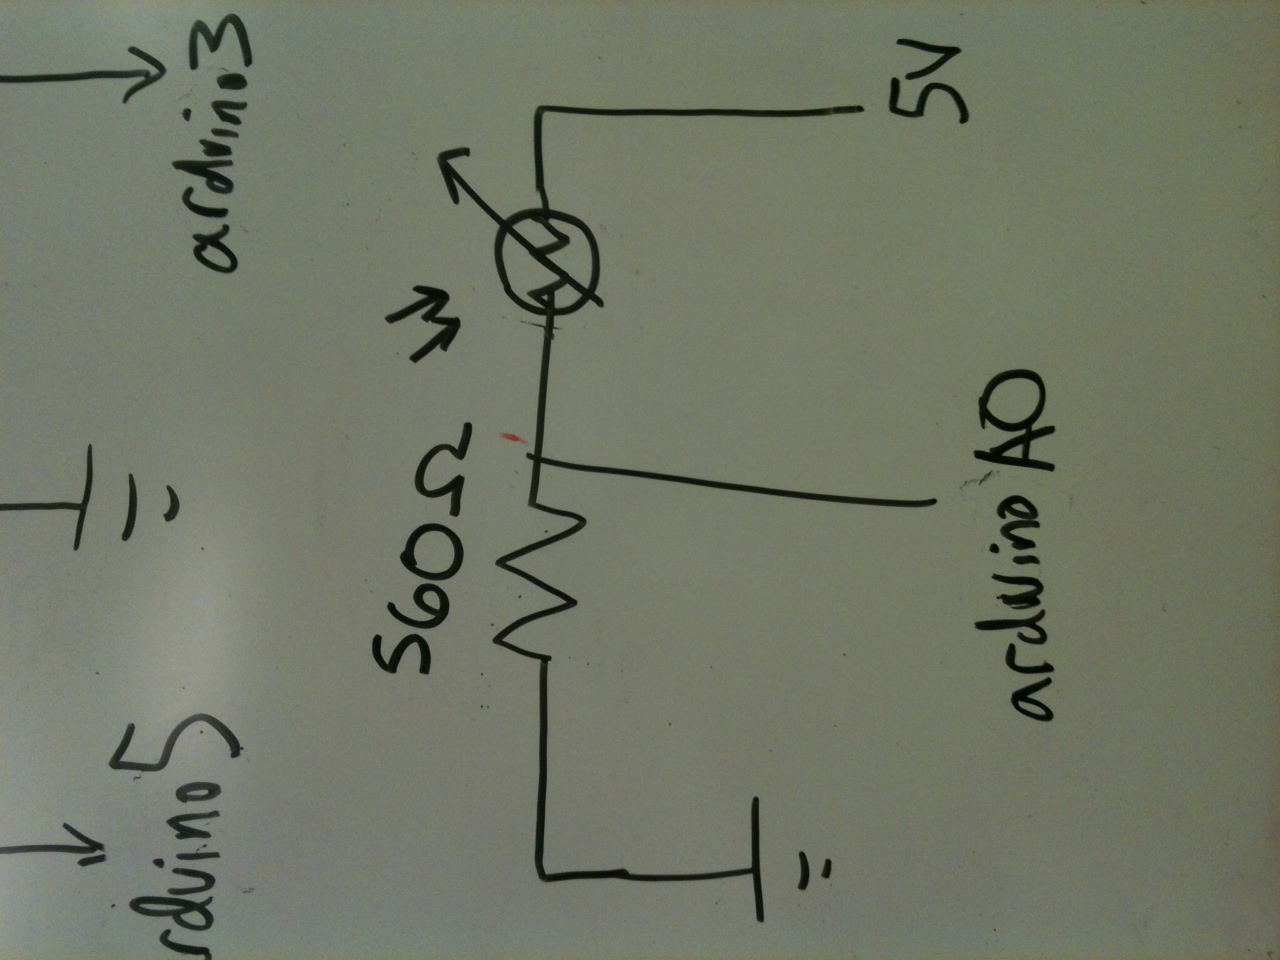 rduino 5
arduino 3
560Ω
5V
arduino A0